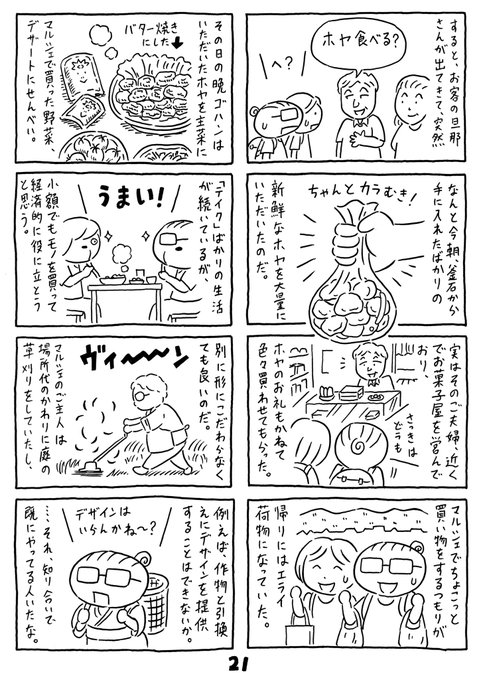 すると、お客の旦那
さんが出てきて、突然
ホヤ食べる?
へ?
なんと今朝、釜石から
手に入れたばかりの
ちゃんとカラむき!
新鮮なホヤを大量に
いただいたのだ。
実はそのご夫婦、近く
でお菓子屋を営んで
おり、
さっきは
どうも
ホヤのお礼もかねて
色々買わせてもらった。
マルシェでちょこっと
買い物をするつもりが
帰りにはエライ
荷物になっていた。
その日の晩ゴハンは
いただいたホヤを主菜に
バター焼き
にした
マルシェで買った野菜、
デザートにせんべい。
「テイク」ばかりの生活
が続いているが、
うまい!
小額でもモノを買って
経済的に役に立とう
と思う。
別に形にこだわらなく
ても良いのだ。
ヴィ〜〜〜ン
マルシェのご主人は
場所代のかわりに庭の
草刈りをしていたし、
例えば、作物と引換
えにデザインを提供
することはできないか。
デザインは
いらんかね〜?
…それ、知り合いで
既にやってる人いたな。
21